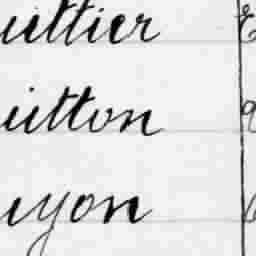 uittier
uitton
uyon